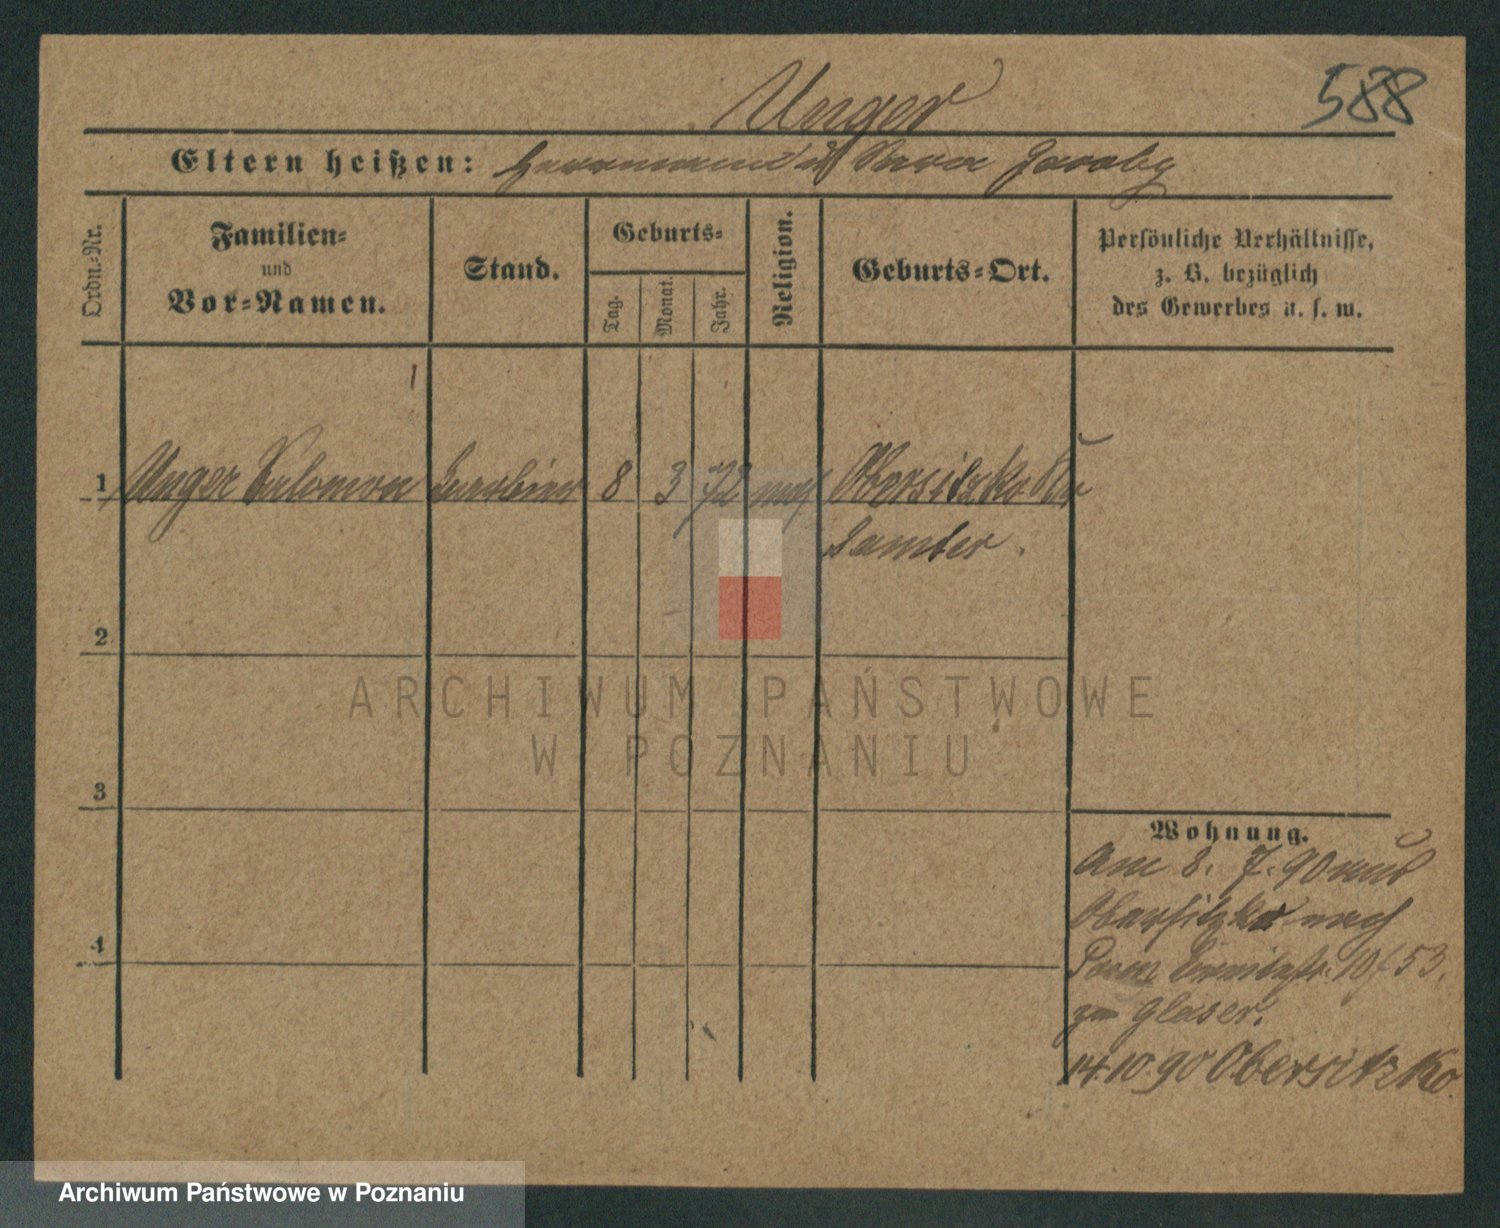 Unger
588
Eltern heißen: Herrmann u Sara Jacoby
Ordn.-Nr.
Familien-
und
Vor-Namen.
Stand.
Geburts-
Tag.
Monat.
Jahr.
Religion.
Geburts-Ort.
Persönliche Verhältnisse,
z. B. bezüglich
des Gewerbes u. s. w.
1 Unger Salomon 8 3 72 mos Obersitzko Kr
Samter.
2
3
4
Wohnung.
Am 8. 7. 90 aus
Obersitzko nach
Posen 10/53.
zu Glaser.
14.10.90 Obersitzko
ARCHIWUM PAŃSTWOWE
W POZNANIU
Archiwum Państwowe w Poznaniu